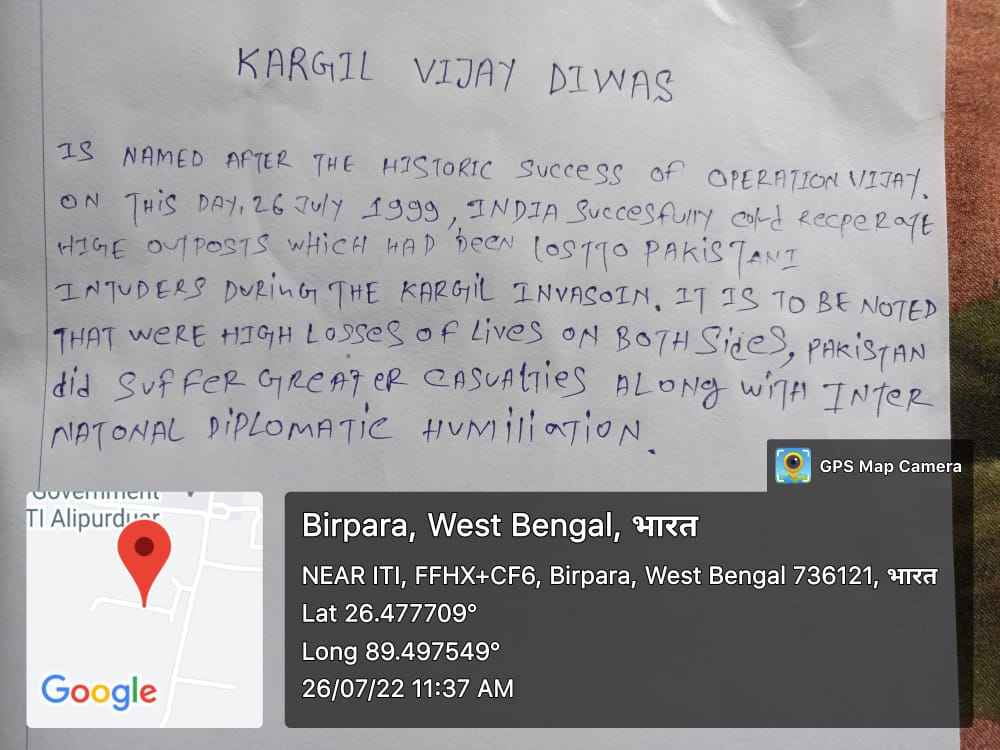 KARGIL VIJAY DIWAS
IS NAMED AFTER THE HISTORIC SUCCESS OF OPERATION VIJAY.
ON THIS DAY, 26 JULY 1999, INDIA SUCCESFULLY RECPERATE
HIGE OUTPOSTS WHICH HAD BEEN LOSTTO PAKISTANI
INTUDERS DURING THE KARGIL INVASOIN. IT IS TO BE NOTED
THAT WERE HIGH LOSSES OF LIVES ON BOTH SIDES, PAKISTAN
did SUFFER GREATER CASUALTIES ALONG WITH INTER
NATONAL DIPLOMATIC HUMILIATION.
GPS Map Camera
Government
TI Alipurduar
Google
Birpara, West Bengal, भारत
NEAR ITI, FFHX+CF6, Birpara, West Bengal 736121, भारत
Lat 26.477709°
Long 89.497549°
26/07/22 11:37 AM